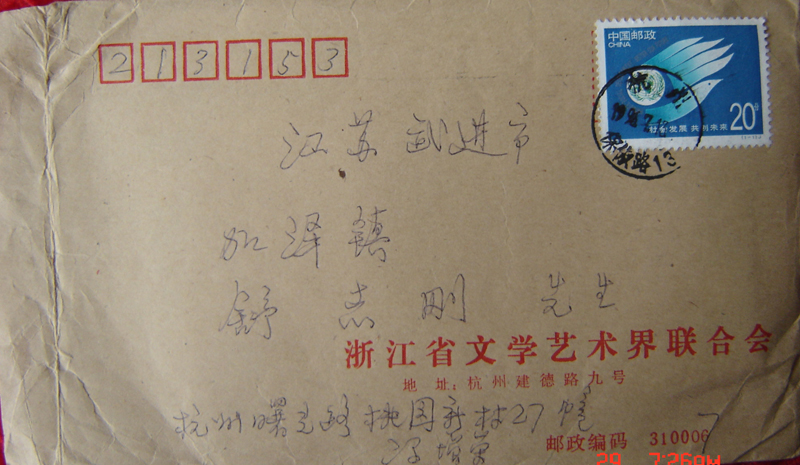 213153
中国邮政
CHINA
社会发展 共创未来
20分
杭州
保俶路13
江苏武进市
加泽镇
舒志刚 先生
浙江省文学艺术界联合会
地址：杭州建德路九号
杭州曙光路桃园新村27幢
邮政编码 310006
7
29 7:25PM